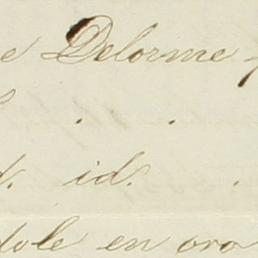 e Delorme
. .
id. .
dole en oro